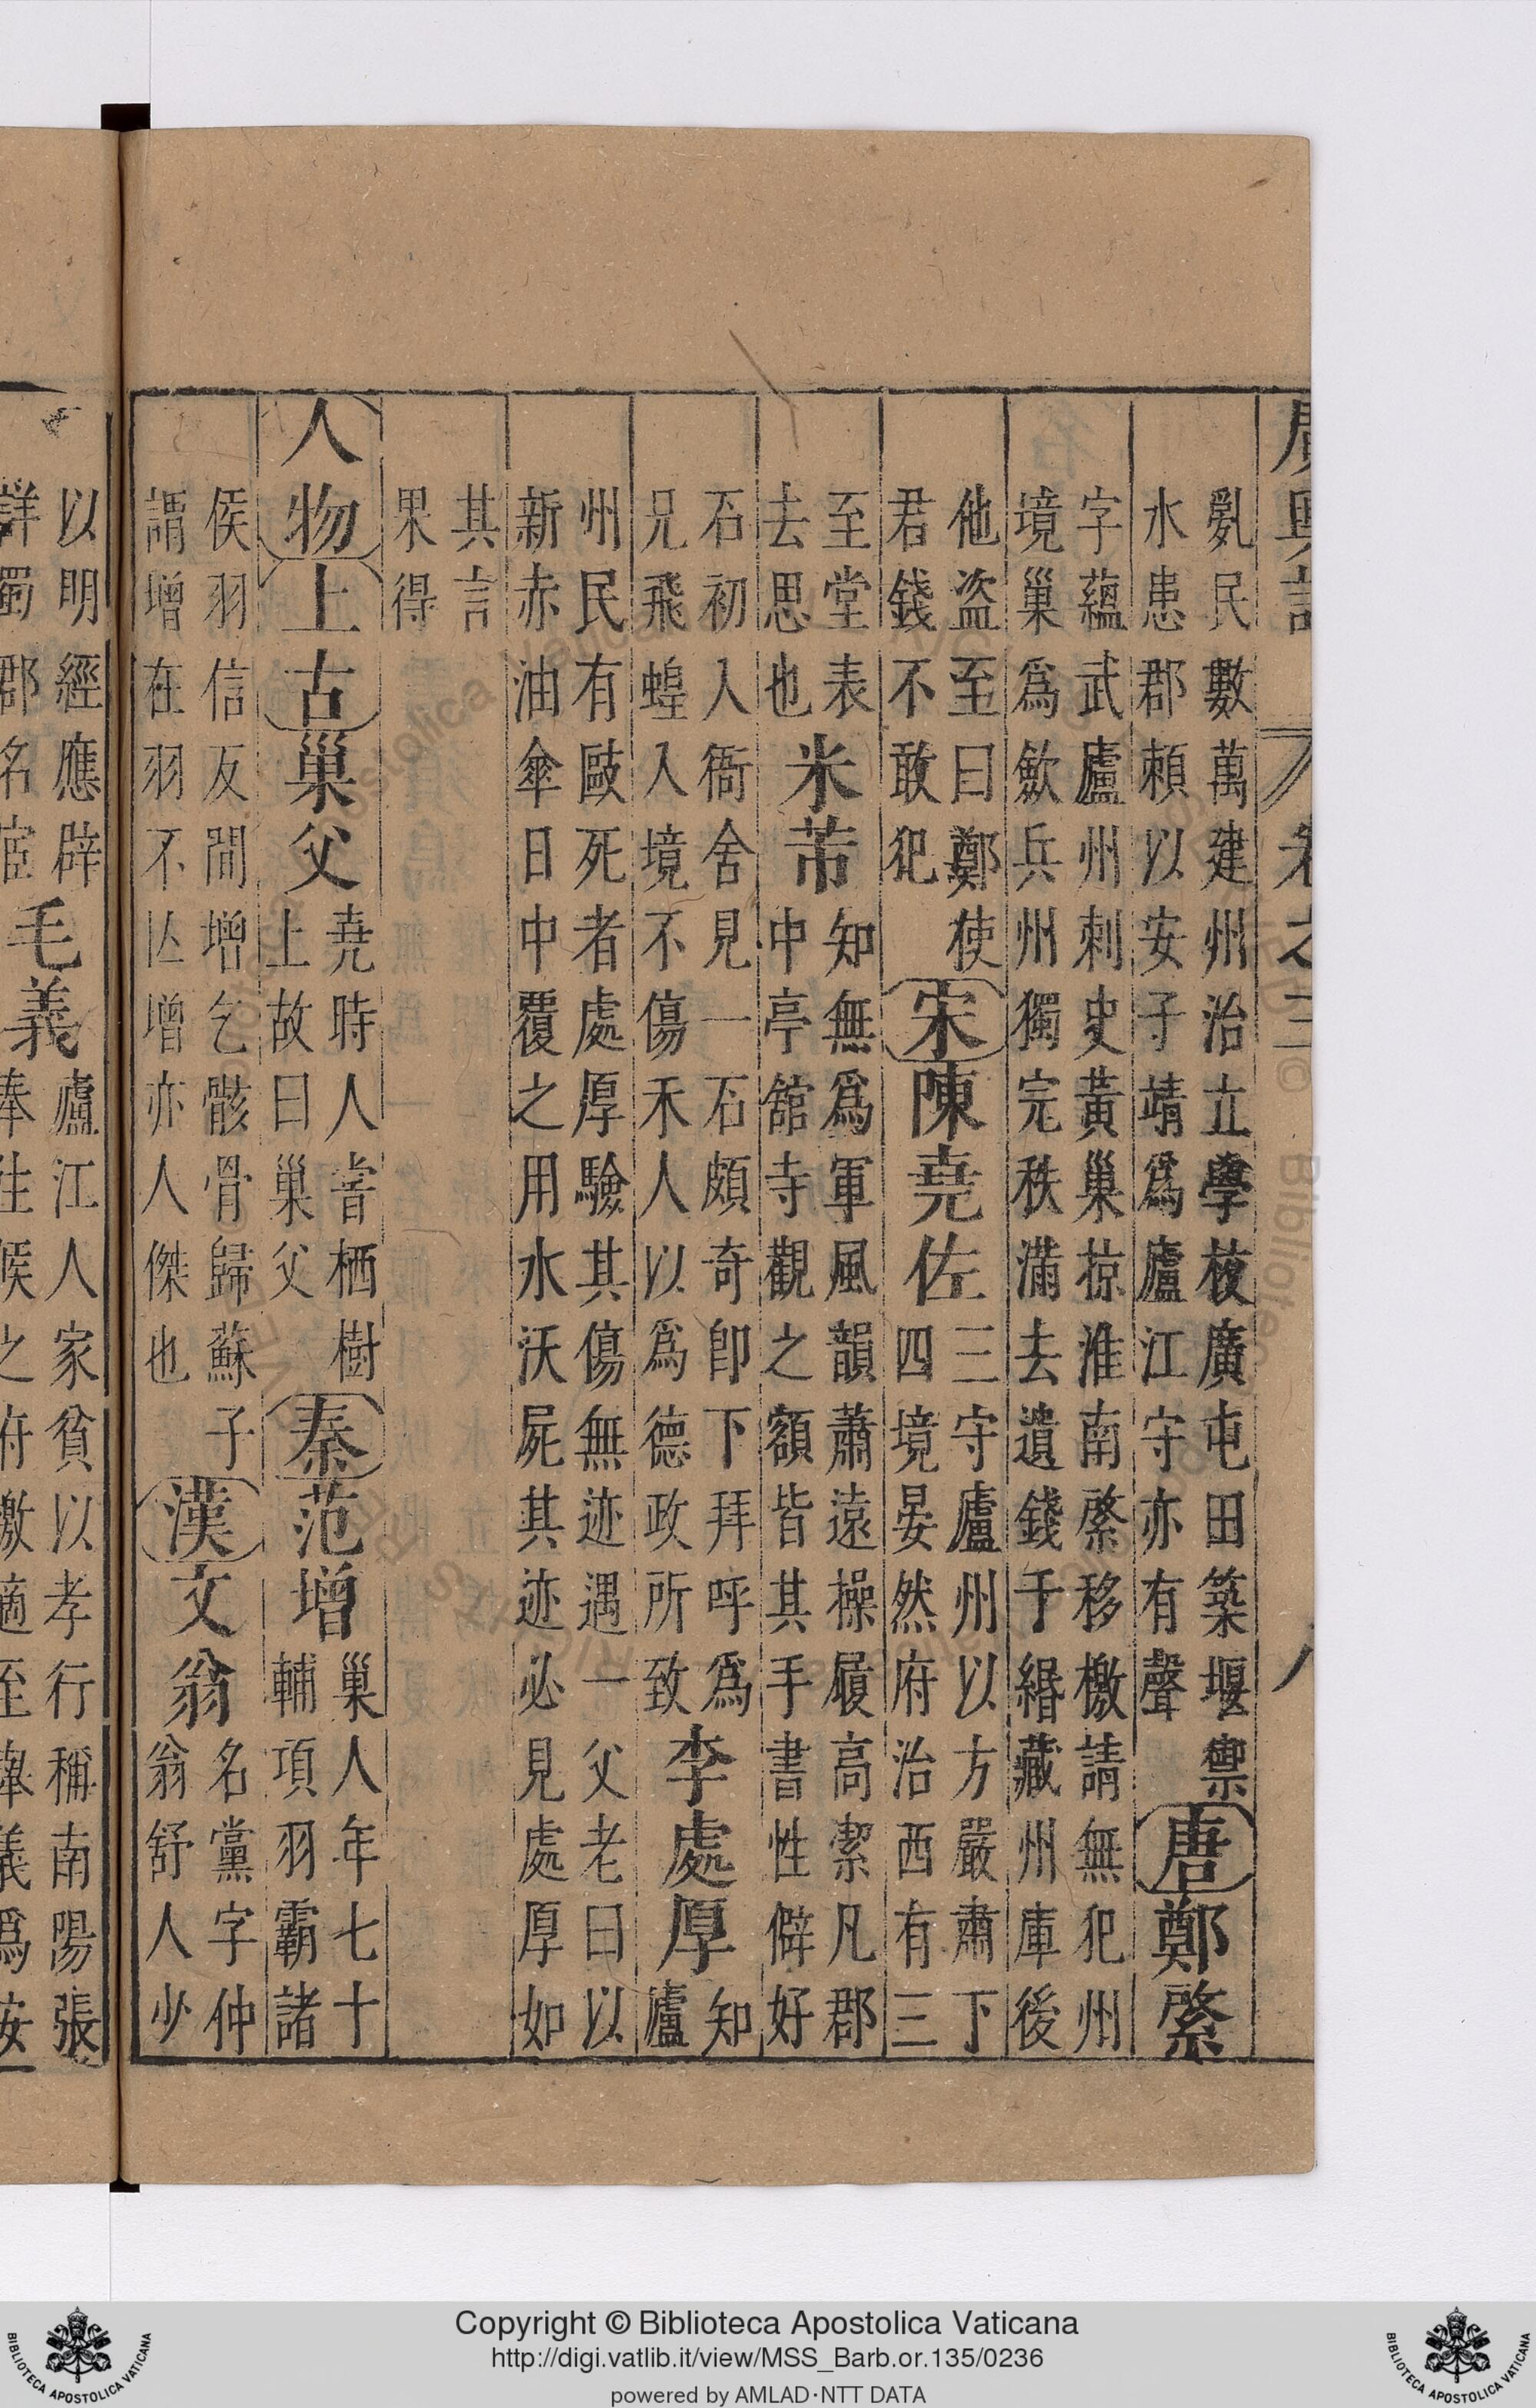 廣輿記 卷之三 八
亂民數萬建州治立學校廣屯田築堰禦
水患郡頼以安子靖爲廬江守亦有聲
唐鄭綮
字蘊武廬州刺史黃巢掠淮南綮移檄請無犯州
境巢爲歛兵州獨完秩滿去遺錢千緡藏州庫後
他盗至曰鄭使
君錢不敢犯
宋陳堯佐
三守廬州以方嚴肅下
四境晏然府治西有三
至堂表
去思也
米芾
知無爲軍風韻蕭遠操履高潔凡郡
中亭舘寺觀之額皆其手書性僻好
石初入衙舍見一石頗奇卽下拜呼爲
兄飛蝗入境不傷禾人以爲德政所致
李處厚
知
廬
州民有毆死者處厚驗其傷無迹遇一父老曰以
新赤油傘日中覆之用水沃屍其迹必見處厚如
其言
果得
人物上古巢父
堯時人嘗栖樹
上故曰巢父
秦范增
巢人年七十
輔項羽霸諸
侯羽信反間增乞骸骨歸蘇子
謂增在羽不亾增亦人傑也
漢文翁
名黨字仲
翁舒人少
以明經應辟
詳蜀郡名宦
毛義
廬江人家貧以孝行稱南陽張
奉往候之府檄適至義爲安
Copyright © Biblioteca Apostolica Vaticana
http://digi.vatlib.it/view/MSS_Barb.or.135/0236
powered by AMLAD·NTT DATA